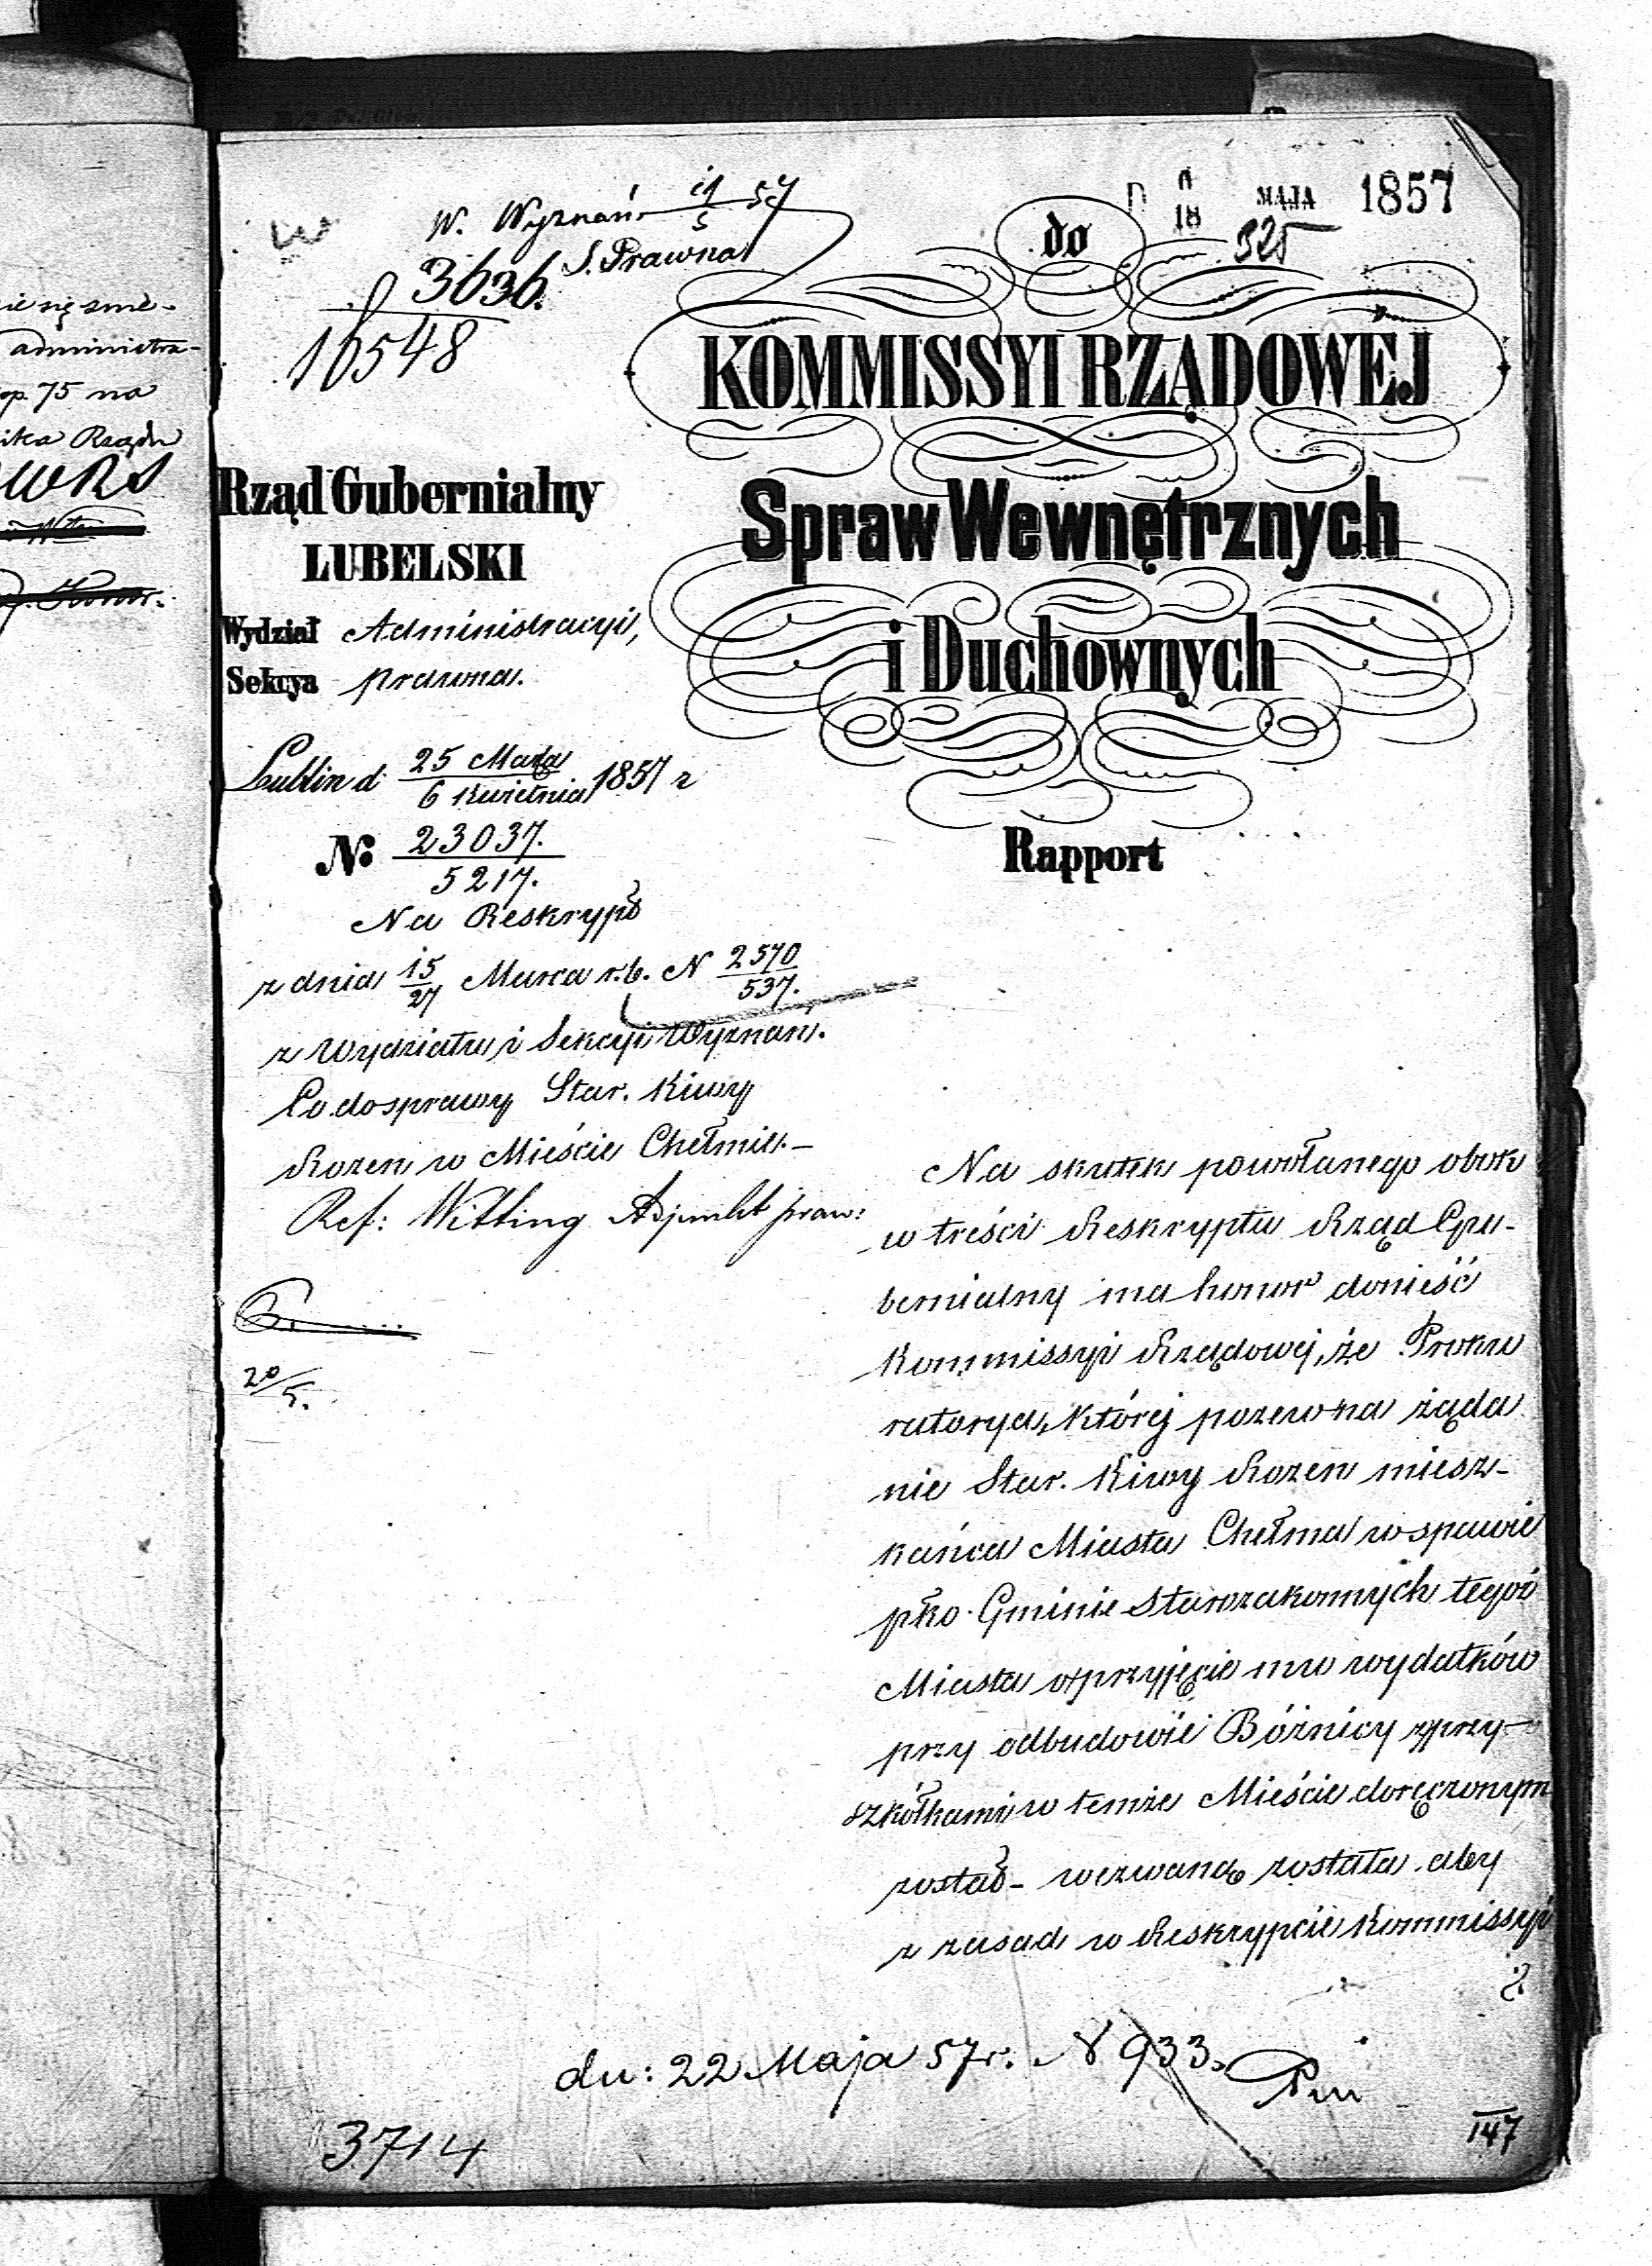 ie się zmie-
administra-
op. 75 na
ika Rządu
W. Wyznań 21/5 57
S. Prawna
3636.
16548
D 6/18 MAJA 1857
325
do
KOMMISSYI RZĄDOWÉJ
Spraw Wewnętrznych
i Duchownych
Rapport
Rząd Gubernialny
LUBELSKI
Wydział Administracyi,
Sekcya prawna.
Lublin d. 25 Marca/6 Kwietnia 1857 r
No 23037./5217.
Na Reskrypt
z dnia 15/27 Marca r.b. N 2570/537.
z Wydziału i Sekcyi Wyznań.
Co do sprawy Star. Kiwy
Rozen w Mieście Chełmie.—
Ref: Witting Adjunkt praw:
20/5.
Na skutek powołanego obok
w treści Reskryptu Rząd Gu-
bernialny ma honor donieść
Kommissyi Rządowej, że Proku
ratorya, której pozew na żąda
nie Star. Kiwy Rozen miesz-
kańca Miasta Chełma w spawie
pko. Gminie Starozakonnych tegoż
Miasta o przyjęcie mu wydatków
przy odbudowie Bóżnicy z przy-
szkółkami w temże Mieście doręczonym
został- wezwaną została aby
z zasad w Reskrypcie Kommissyi
dn: 22 Maja 57 r. N 933.
3714
147